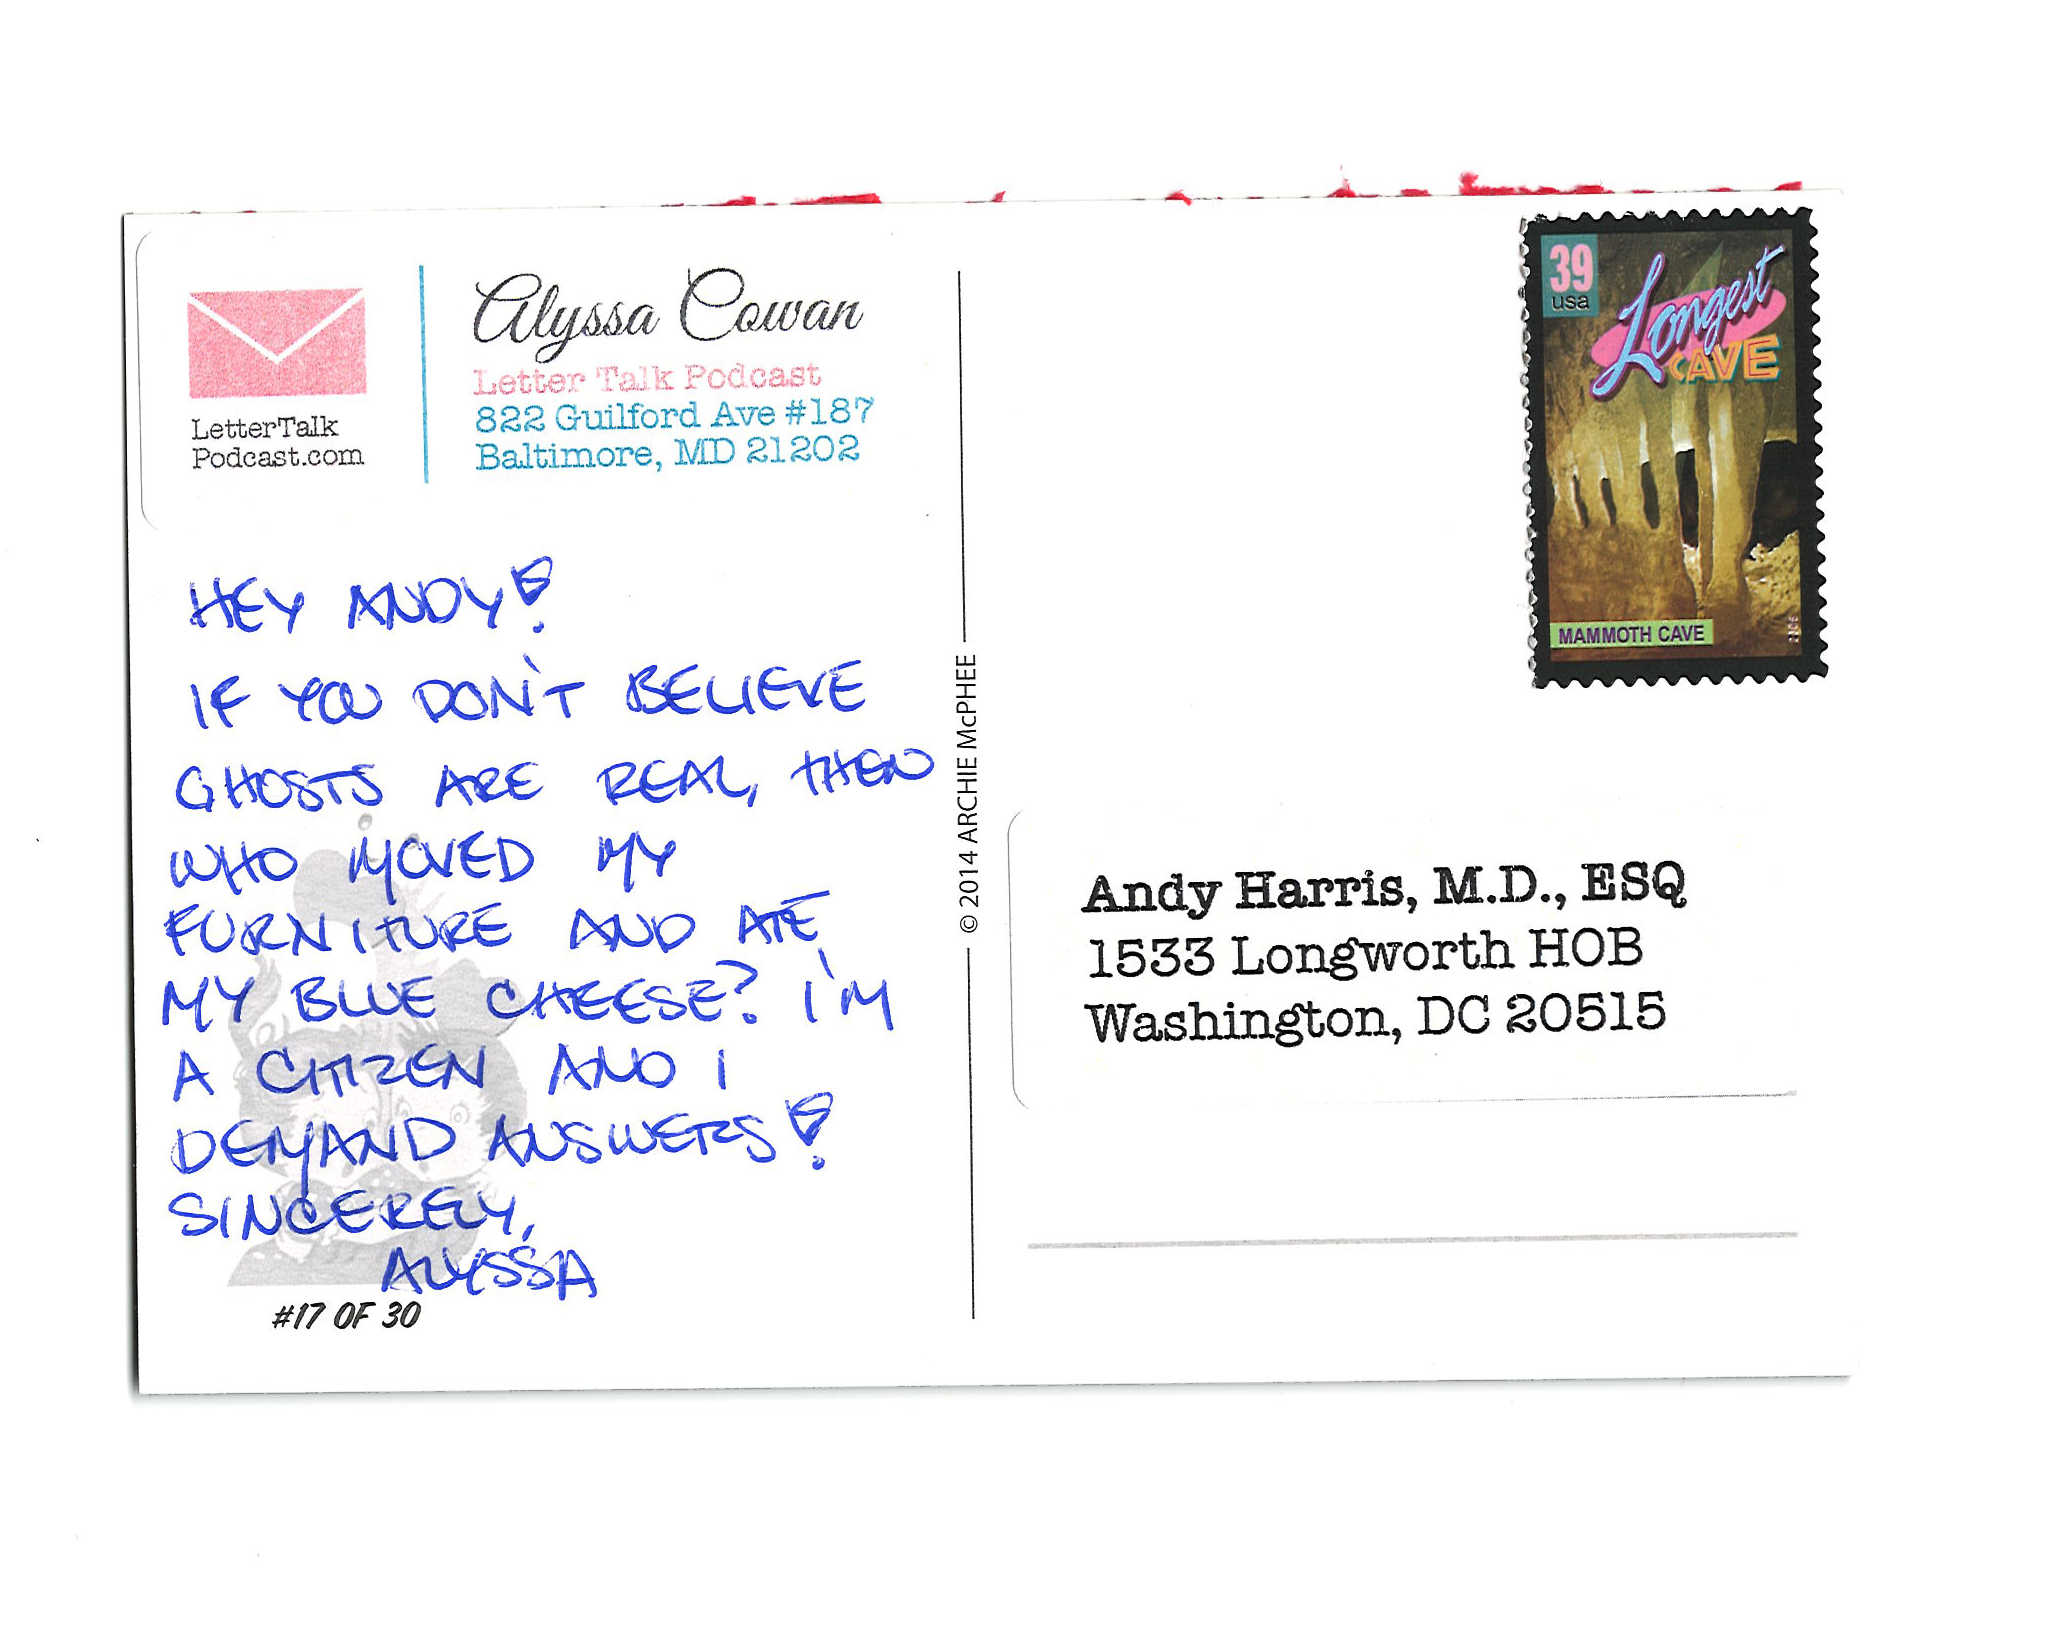 LetterTalk
Podcast.com
Alyssa Cowan
Letter Talk Podcast
822 Guilford Ave #187
Baltimore, MD 21202
HEY ANDY!
IF YOU DON'T BELIEVE
GHOSTS ARE REAL, THEN
WHO MOVED MY
FURNITURE AND ATE
MY BLUE CHEESE? I'M
A CITIZEN AND I
DEMAND ANSWERS!
SINCERELY,
ALYSSA
#17 OF 30
© 2014 ARCHIE McPHEE
39
usa
Longest
CAVE
MAMMOTH CAVE
Andy Harris, M.D., ESQ
1533 Longworth HOB
Washington, DC 20515